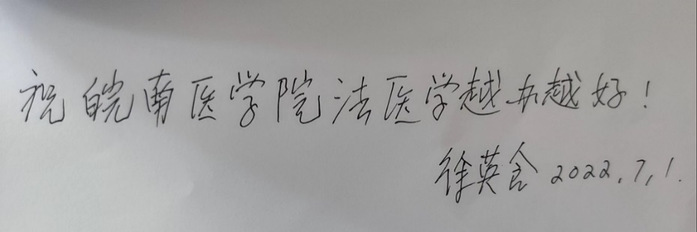 祝皖南医学院法医学越办越好！
徐英含 2022.7.1.